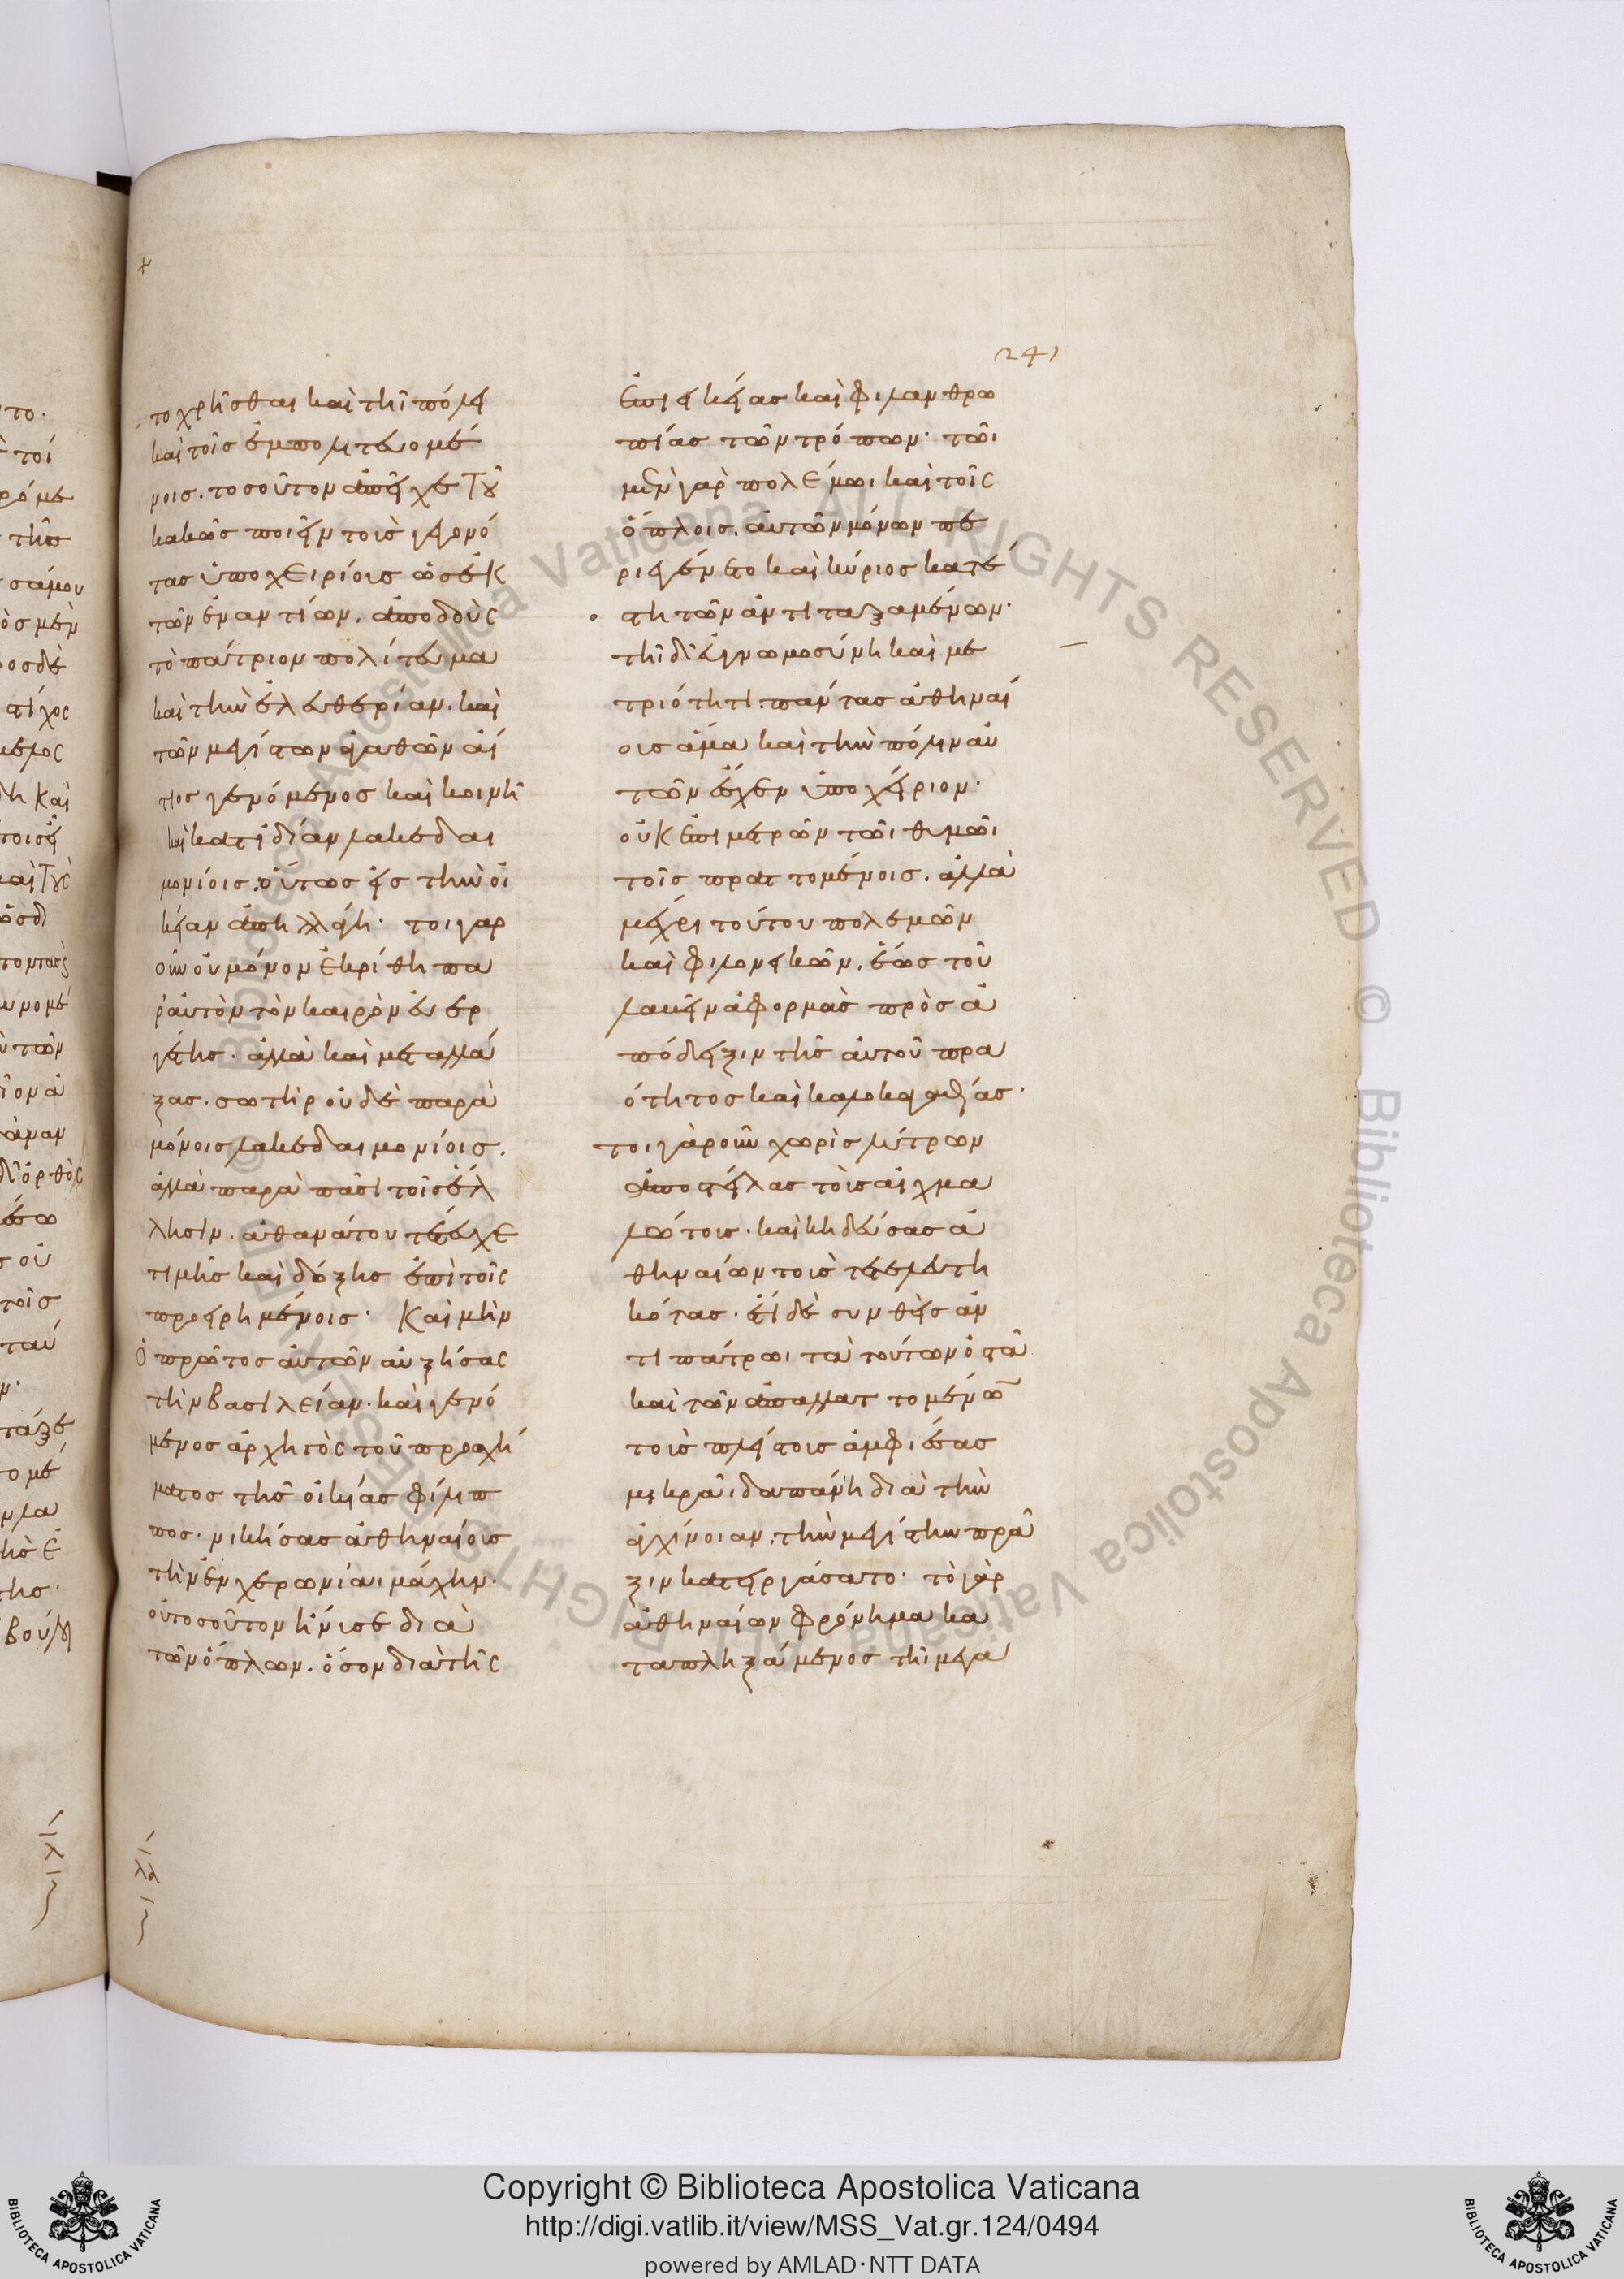 241
το χρῆσθαι καὶ τῆι πόλει
καὶ τοῖς ἐμπολιτευομέ
νοις. τοσοῦτον ἀπεῖχε τοῦ
κακῶς ποιεῖν τοὺς γεγονό
τας ὑποχειρίους ὡς ἐκ
τῶν ἐναντίων. ἀποδοὺς
τὸ πάτριον πολίτευμα
καὶ τὴν ἐλευθερίαν. καὶ
τῶν μεγίστων ἀγαθῶν αἴ
τιος γενόμενος καὶ κοινῆ
καὶ κατιδίαν λακεδαι
μονίοις. οὕτως εἰς τὴν οἰ
κείαν ἀπηλλάγη. τοιγαρ
οῦν οὐ μόνον ἐκρίθη πα
ρ' αὐτὸν τὸν καιρὸν εὐερ
γέτης. ἀλλὰ καὶ μεταλλά
ξας. σωτὴρ οὐδὲ παρὰ
μόνοις λακεδαιμονίοις.
ἀλλὰ παρὰ πᾶσι τοῖς ἕλ
λησιν. ἀθανάτου τέτευχε
τιμῆς καὶ δόξης ἐπὶ τοῖς
προειρημένοις. Καὶ μὴν
ὁ πρῶτος αὐτῶν αὐξήσας
τὴν βασιλείαν. καὶ γενό
μενος ἀρχηγὸς τοῦ προσχή
ματος τῆς οἰκίας φίλιπ
πος. νικήσας ἀθηναίους
τὴν ἐν χερωνίαι μάχην.
οὐ τοσοῦτον ἤνισε διὰ
τῶν ὅπλων. ὅσον διὰ τῆς
ἐπιεικείας καὶ φιλανθρω
πίας τῶν τρόπων. τῶι
μὲν γὰρ πολέμωι καὶ τοῖς
ὅπλοις. αὐτῶν μόνων πε
ριεγένετο καὶ κύριος κατέ
στη τῶν ἀντιταξαμένων.
τῆι δ' εὐγνωμοσύνη καὶ με
τριότητι. πάντας ἀθηναί
ους ἅμα καὶ τὴν πόλιν αὐ
τῶν ἔσχεν ὑποχείριον.
οὐκ ἐπιμετρῶν τῶι θυμῶι
τοῖς πραττομένοις. ἀλλὰ
μέχρι τούτου πολεμῶν
καὶ φιλονεικῶν. ἕως τοῦ
λαβεῖν ἀφορμὰς πρὸς ἀ
πόδειξιν τῆς αὑτοῦ πρα
ότητος καὶ καλοκαγαθίας.
τοιγαροῦν χωρὶς λύτρων
ἀποστείλας τοὺς αἰχμα
λώτους. καὶ κηδεύσας ἀ
θηναίων τοὺς τετελευτη
κότας. ἔτι δὲ συνθεὶς ἀν
τιπάτρωι τὰ τούτων ὀστᾶ
καὶ τῶν ἀπαλλαττομένων
τοὺς πλείστους ἀμφιέσας
μικρᾶι δαπάνη διὰ τὴν
ἀγχίνοιαν. τὴν μεγίστην πρᾶ
ξιν κατειργάσατο. τὸ γὰρ
ἀθηναίων φρόνημα κα
ταπληξάμενος τῆι μεγα
Copyright © Biblioteca Apostolica Vaticana
http://digi.vatlib.it/view/MSS_Vat.gr.124/0494
powered by AMLAD·NTT DATA